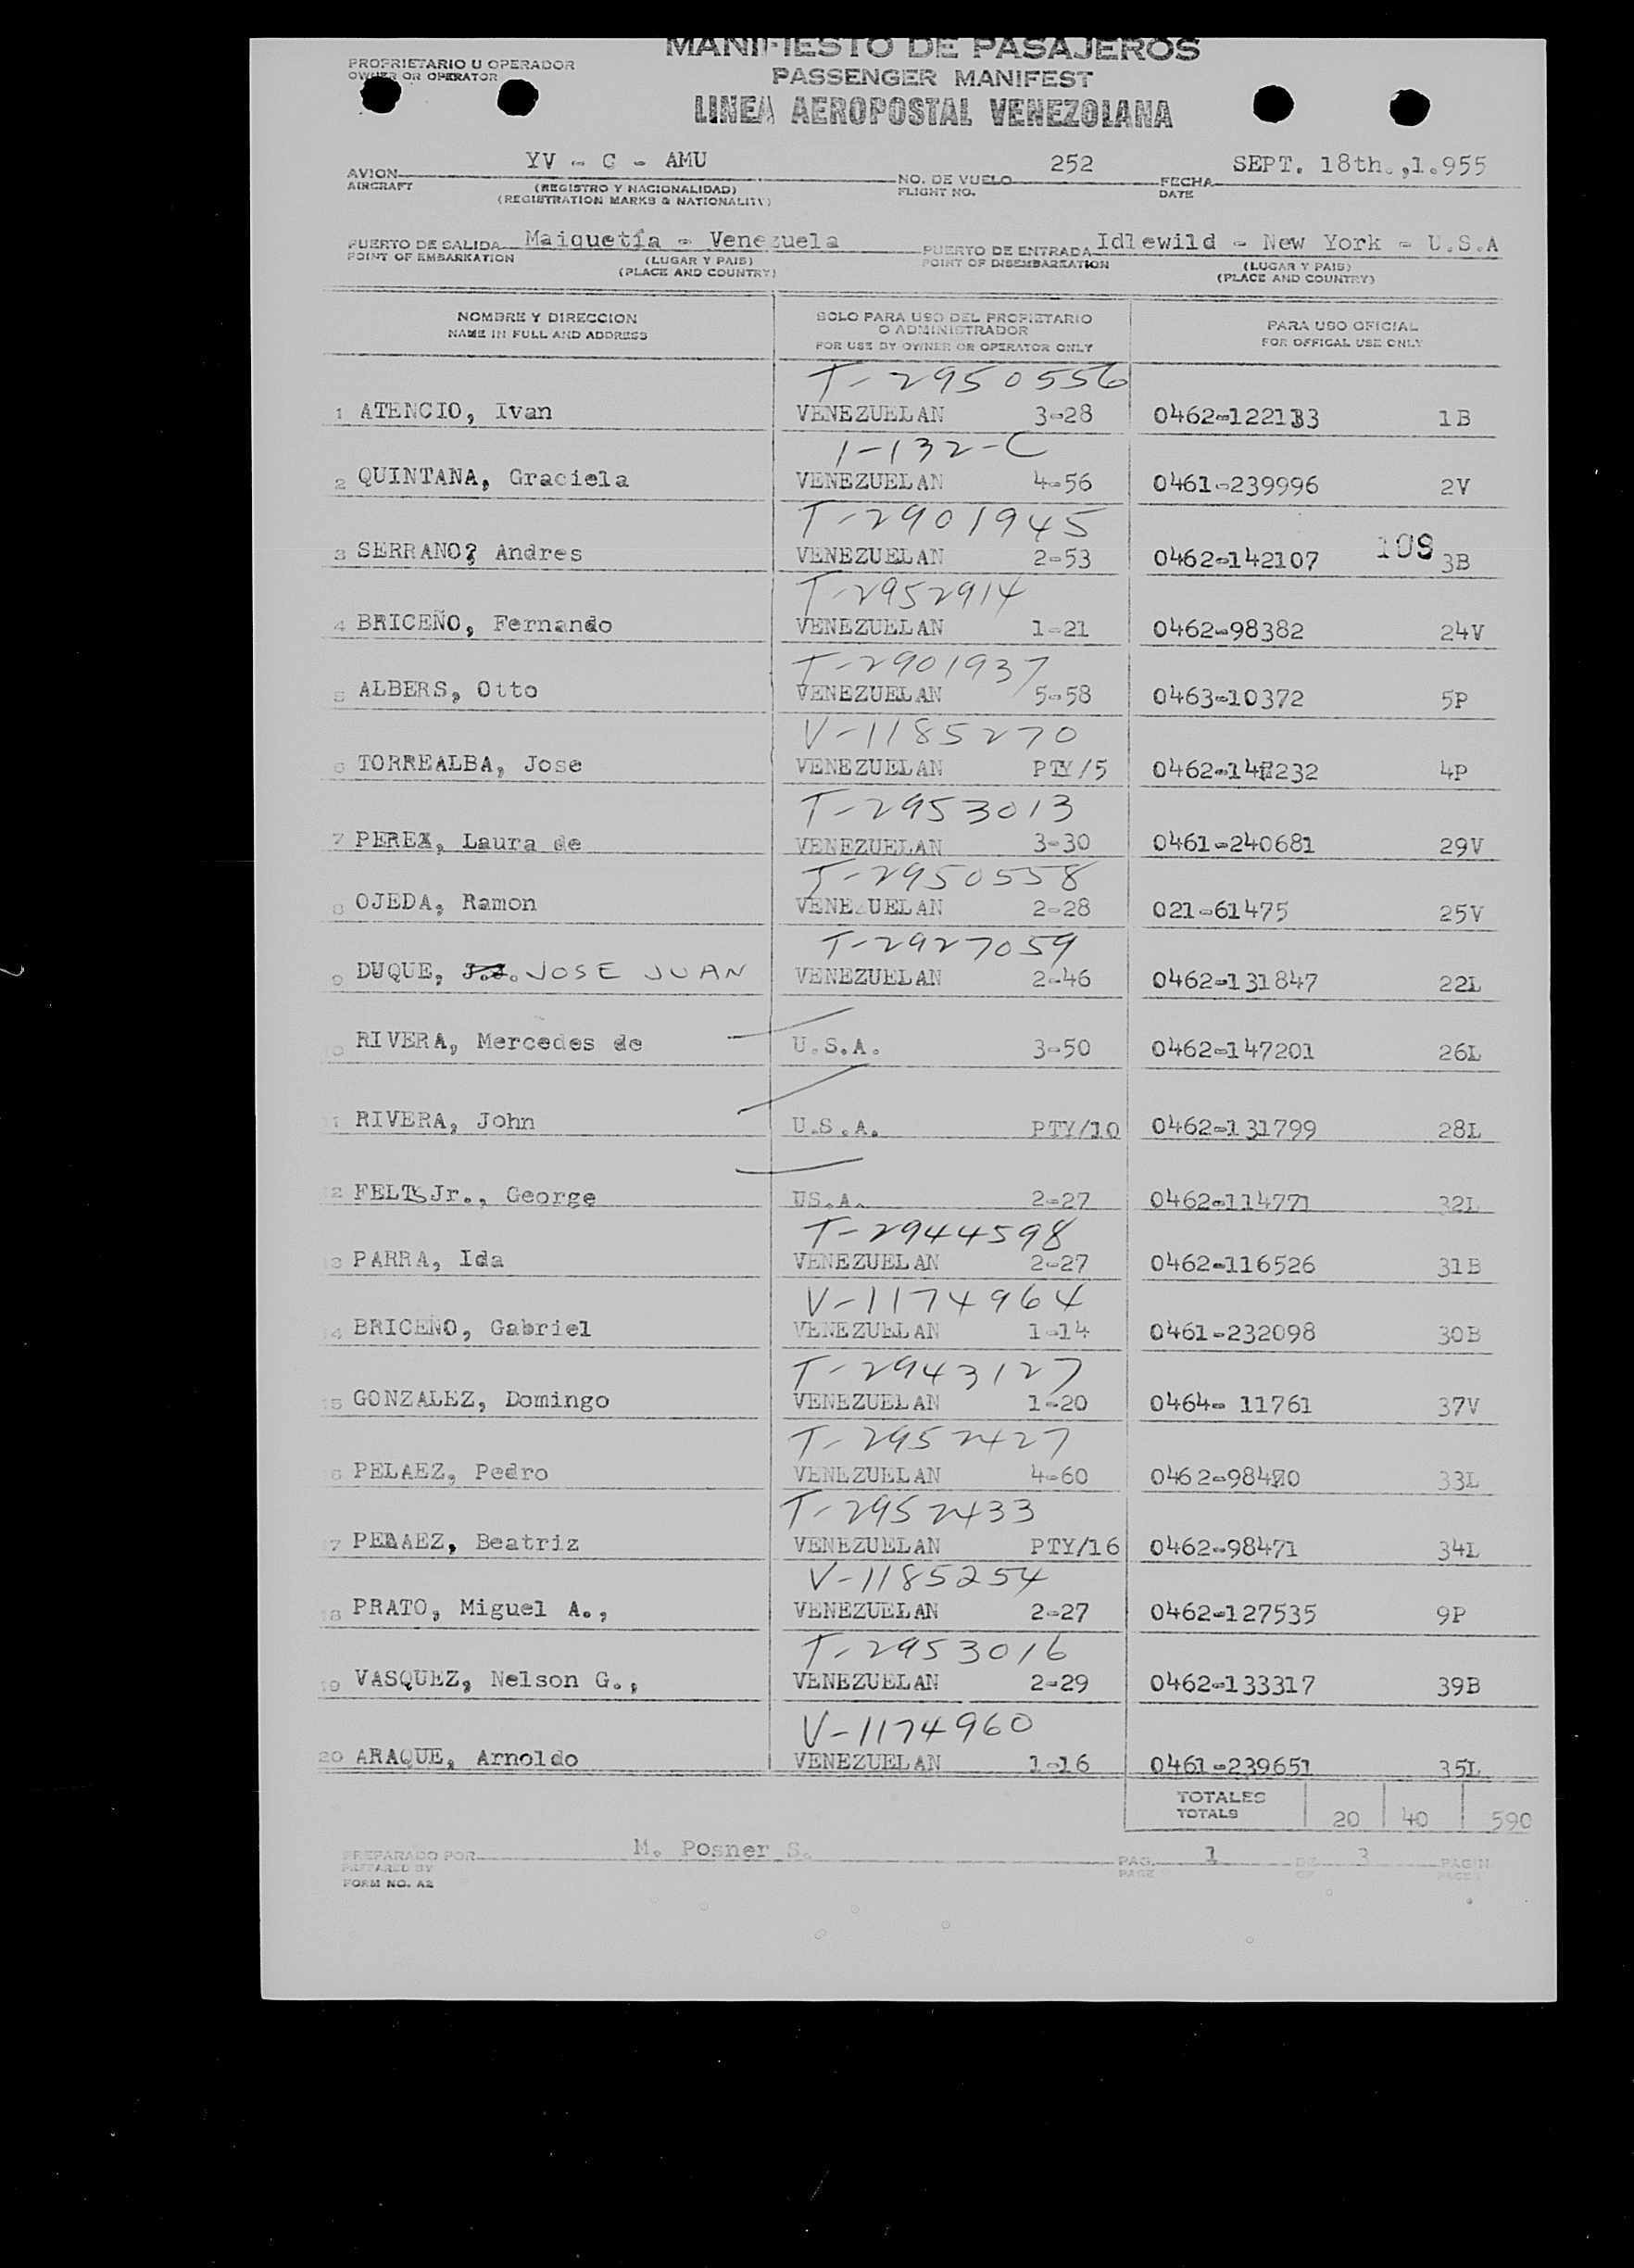 MANIFIESTO DE PASAJEROS
PROPRIETARIO U OPERADOR
OWNER OR OPERATOR
PASSENGER MANIFEST
LINEA AEROPOSTAL VENEZOLANA
AVION YV - C - AMU NO. DE VUELO 252 FECHA SEPT. 18th.,1.955
AIRCRAFT (REGISTRO Y NACIONALIDAD) FLIGHT NO. DATE
(REGISTRATION MARKS & NATIONALITY)
PUERTO DE SALIDA Maiquetía - Venezuela PUERTO DE ENTRADA Idlewild - New York - U.S.A
POINT OF EMBARKATION (LUGAR Y PAIS) POINT OF DISEMBARKATION (LUGAR Y PAIS)
(PLACE AND COUNTRY) (PLACE AND COUNTRY)
NOMBRE Y DIRECCION SOLO PARA USO DEL PROPIETARIO PARA USO OFICIAL
NAME IN FULL AND ADDRESS O ADMINISTRADOR FOR OFFICAL USE ONLY
FOR USE BY OWNER OR OPERATOR ONLY
T-2950556
1 ATENCIO, Ivan VENEZUELAN 3-28 0462-122133 1B
1-132-C
2 QUINTANA, Graciela VENEZUELAN 4-56 0461-239996 2V
T-2901945
3 SERRANO? Andres VENEZUELAN 2-53 0462-142107 109 3B
T-2952914
4 BRICEÑO, Fernando VENEZUELAN 1-21 0462-98382 24V
T-2901937
5 ALBERS, Otto VENEZUELAN 5-58 0463-10372 5P
V-1185270
6 TORREALBA, Jose VENEZUELAN PTY/5 4P
T-2953013
7 PEREZ, Laura de VENEZUELAN 3-30 0461-240681 29V
T-2950558
8 OJEDA, Ramon VENEZUELAN 2-28 021-61475 25V
T-2927059
9 DUQUE, J.J. JOSE JUAN VENEZUELAN 2-46 0462-131847 22L
10 RIVERA, Mercedes de U.S.A. 3-50 0462-147201 26L
11 RIVERA, John U.S.A. PTY/10 0462-131799 28L
12 FELTS Jr., George US.A. 2-27 0462-114771 32L
T-2944598
13 PARRA, Ida VENEZUELAN 2-27 0462-116526 31B
V-1174964
14 BRICEÑO, Gabriel VENEZUELAN 1-14 0461-232098 30B
T-2943127
15 GONZALEZ, Domingo VENEZUELAN 1-20 0464- 11761 37V
T-2952427
16 PELAEZ, Pedro VENEZUELAN 4-60 0462-98470 33L
T-2952433
17 PELAEZ, Beatriz VENEZUELAN PTY/16 0462-98471 34L
V-1185254
18 PRATO, Miguel A., VENEZUELAN 2-27 0462-127535 9P
T-2953016
19 VASQUEZ, Nelson G., VENEZUELAN 2-29 0462-133317 39B
V-1174960
20 ARAQUE, Arnoldo VENEZUELAN 1-16 0461-239651 35L
TOTALES
TOTALS 20 40 590
PREPARADO POR M. Posner S. PAG. 1 DE 3 PAGIN
PREPARED BY PAGE OF PAGES
FORM NO. A2